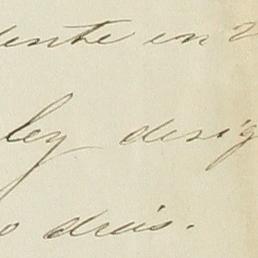 dente en
ley desig
o dias.